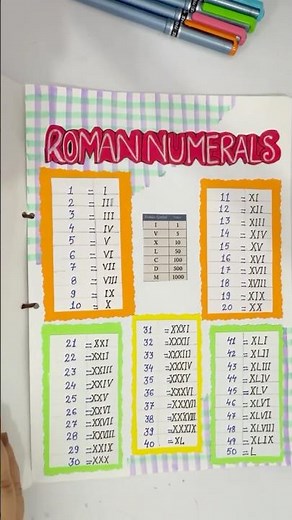 ROMAN NUMERALS
1 = I
2 = III
3 = III
4 = IV
5 = V
6 = VI
7 = VII
8 = VIII
9 = IX
10 = X
I 1
V 5
X 10
L 50
C 100
D 500
M 1000
11 = XI
12 = XII
13 = XIII
14 = XIV
15 = XV
16 = XVI
17 = XVII
18 = XVIII
19 = XIX
20 = XX
21 = XXI
22 = XXII
23 = XXIII
24 = XXIV
25 = XXV
26 = XXVI
27 = XXVII
28 = XXVIII
29 = XXIX
30 = XXX
31 = XXXI
32 = XXXII
33 = XXXIII
34 = XXXIV
35 = XXXV
36 = XXXVI
37 = XXXVII
38 = XXXVIII
39 = XXXIX
40 = XL
41 = XLI
42 = XLII
43 = XLIII
44 = XLIV
45 = XLV
46 = XLVI
47 = XLVII
48 = XLVIII
49 = XLIX
50 = L